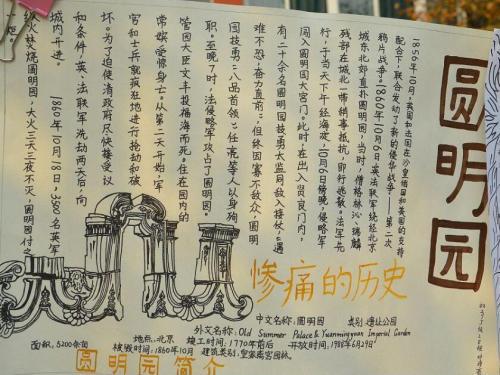 圆明园
1856年10月,英国和法国在沙皇俄国和美国的支持
配合下,联合发动了新的侵华战争——第二次
鸦片战争。1860年10月6日英法联军绕经北京
城东北郊直扑圆明园,当时,僧格林沁、瑞麟
残部在城北一带稍事抵抗,即行逃散。法军先
行,于当天下午经海淀,10月6日傍晚,侵略军
闯入圆明园大宫门。此时,在出入贤良门内,
有二十余名圆明园技勇太监同敌人接仗,"遇
难不恐,奋力直前",但终因寡不敌众,圆明
园技勇"八品首领"任亮等人以身殉
职。至晚7时,法侵略军攻占了圆明园。
管园大臣文丰投福海而死。住在园内的
常嫔受惊身亡。从第二天开始,军
官和士兵就疯狂地进行抢劫和破
坏。为了迫使清政府尽快接受议
和条件,英、法联军洗劫两天后,向
城内开进。1860年10月18日,3500名英军
纵火焚烧圆明园,大火三天三夜不灭,圆明园付之
一炬。
惨痛的历史
中文名称:圆明园 类别:遗址公园
外文名称:Old Summer Palace & Yuanmingyuan Imperial Garden
地点:北京 竣工时间:1770年前后 开放时间:1988年6月29日
面积:5200余亩 被毁时间:1860年10月 建筑类别:皇家离宫园林
圆明园简介